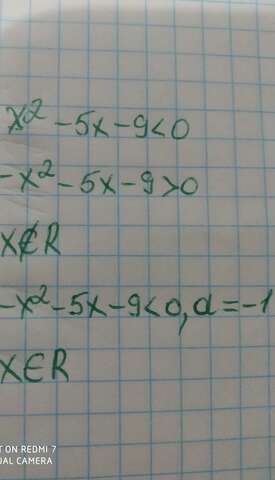 x² -5x-9<0
-x²-5x-9>0
x∉R
-x²-5x-9<0, a=-1
x∈R
T ON REDMI 7
UAL CAMERA